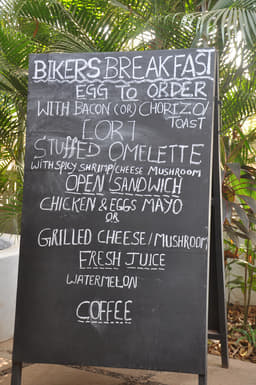 BIKERS BREAKFAST
EGG TO ORDER
WITH BACON (OR) CHORIZO/
TOAST
[OR]
STUFFED OMELETTE
WITH SPICY SHRIMP/CHEESE MUSHROOM
OPEN SANDWICH
CHICKEN & EGGS MAYO
OR
GRILLED CHEESE/MUSHROOM
FRESH JUICE
WATERMELON
COFFEE